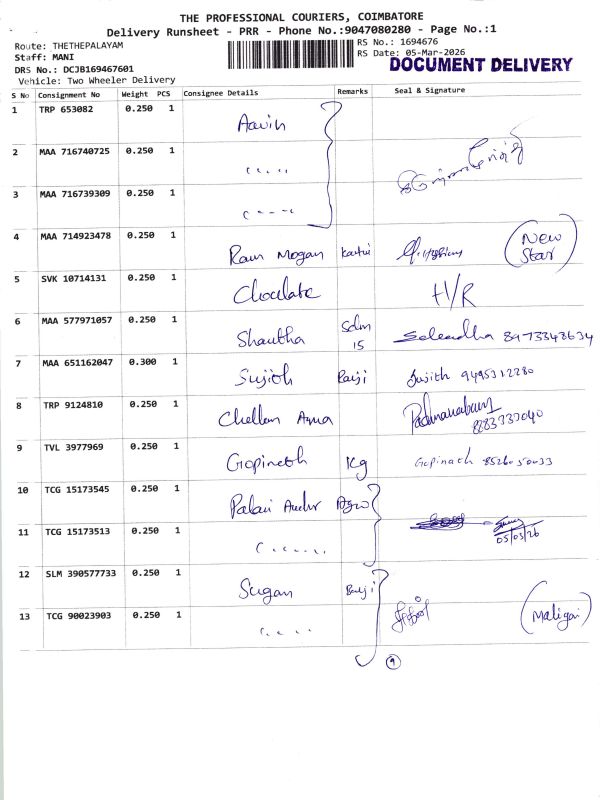 THE PROFESSIONAL COURIERS, COIMBATORE
Delivery Runsheet - PRR - Phone No.:9047080280 - Page No.:1
Route: THETHEPALAYAM
Staff: MANI
DRS No.: DCJB169467601
Vehicle: Two Wheeler Delivery
RS No.: 1694676
RS Date: 05-Mar-2026
DOCUMENT DELIVERY
S No Consignment No Weight PCS Consignee Details Remarks Seal & Signature
1 TRP 653082 0.250 1
2 MAA 716740725 0.250 1
3 MAA 716739309 0.250 1
4 MAA 714923478 0.250 1 Ram Mogan (New Star)
5 SVK 10714131 0.250 1 Choclate H/R
6 MAA 577971057 0.250 1 Shantha Sdm 15 8973348634
7 MAA 651162047 0.300 1 Sujith Balji Sujith 9495312280
8 TRP 9124810 0.250 1 Chellam Padmanabam
9 TVL 3977969 0.250 1 Gopinath Kg Gopinath 8526050033
10 TCG 15173545 0.250 1 Palani
11 TCG 15173513 0.250 1 05/03/26
12 SLM 390577733 0.250 1 Sugan Balji
13 TCG 90023903 0.250 1 (Maligai)
9